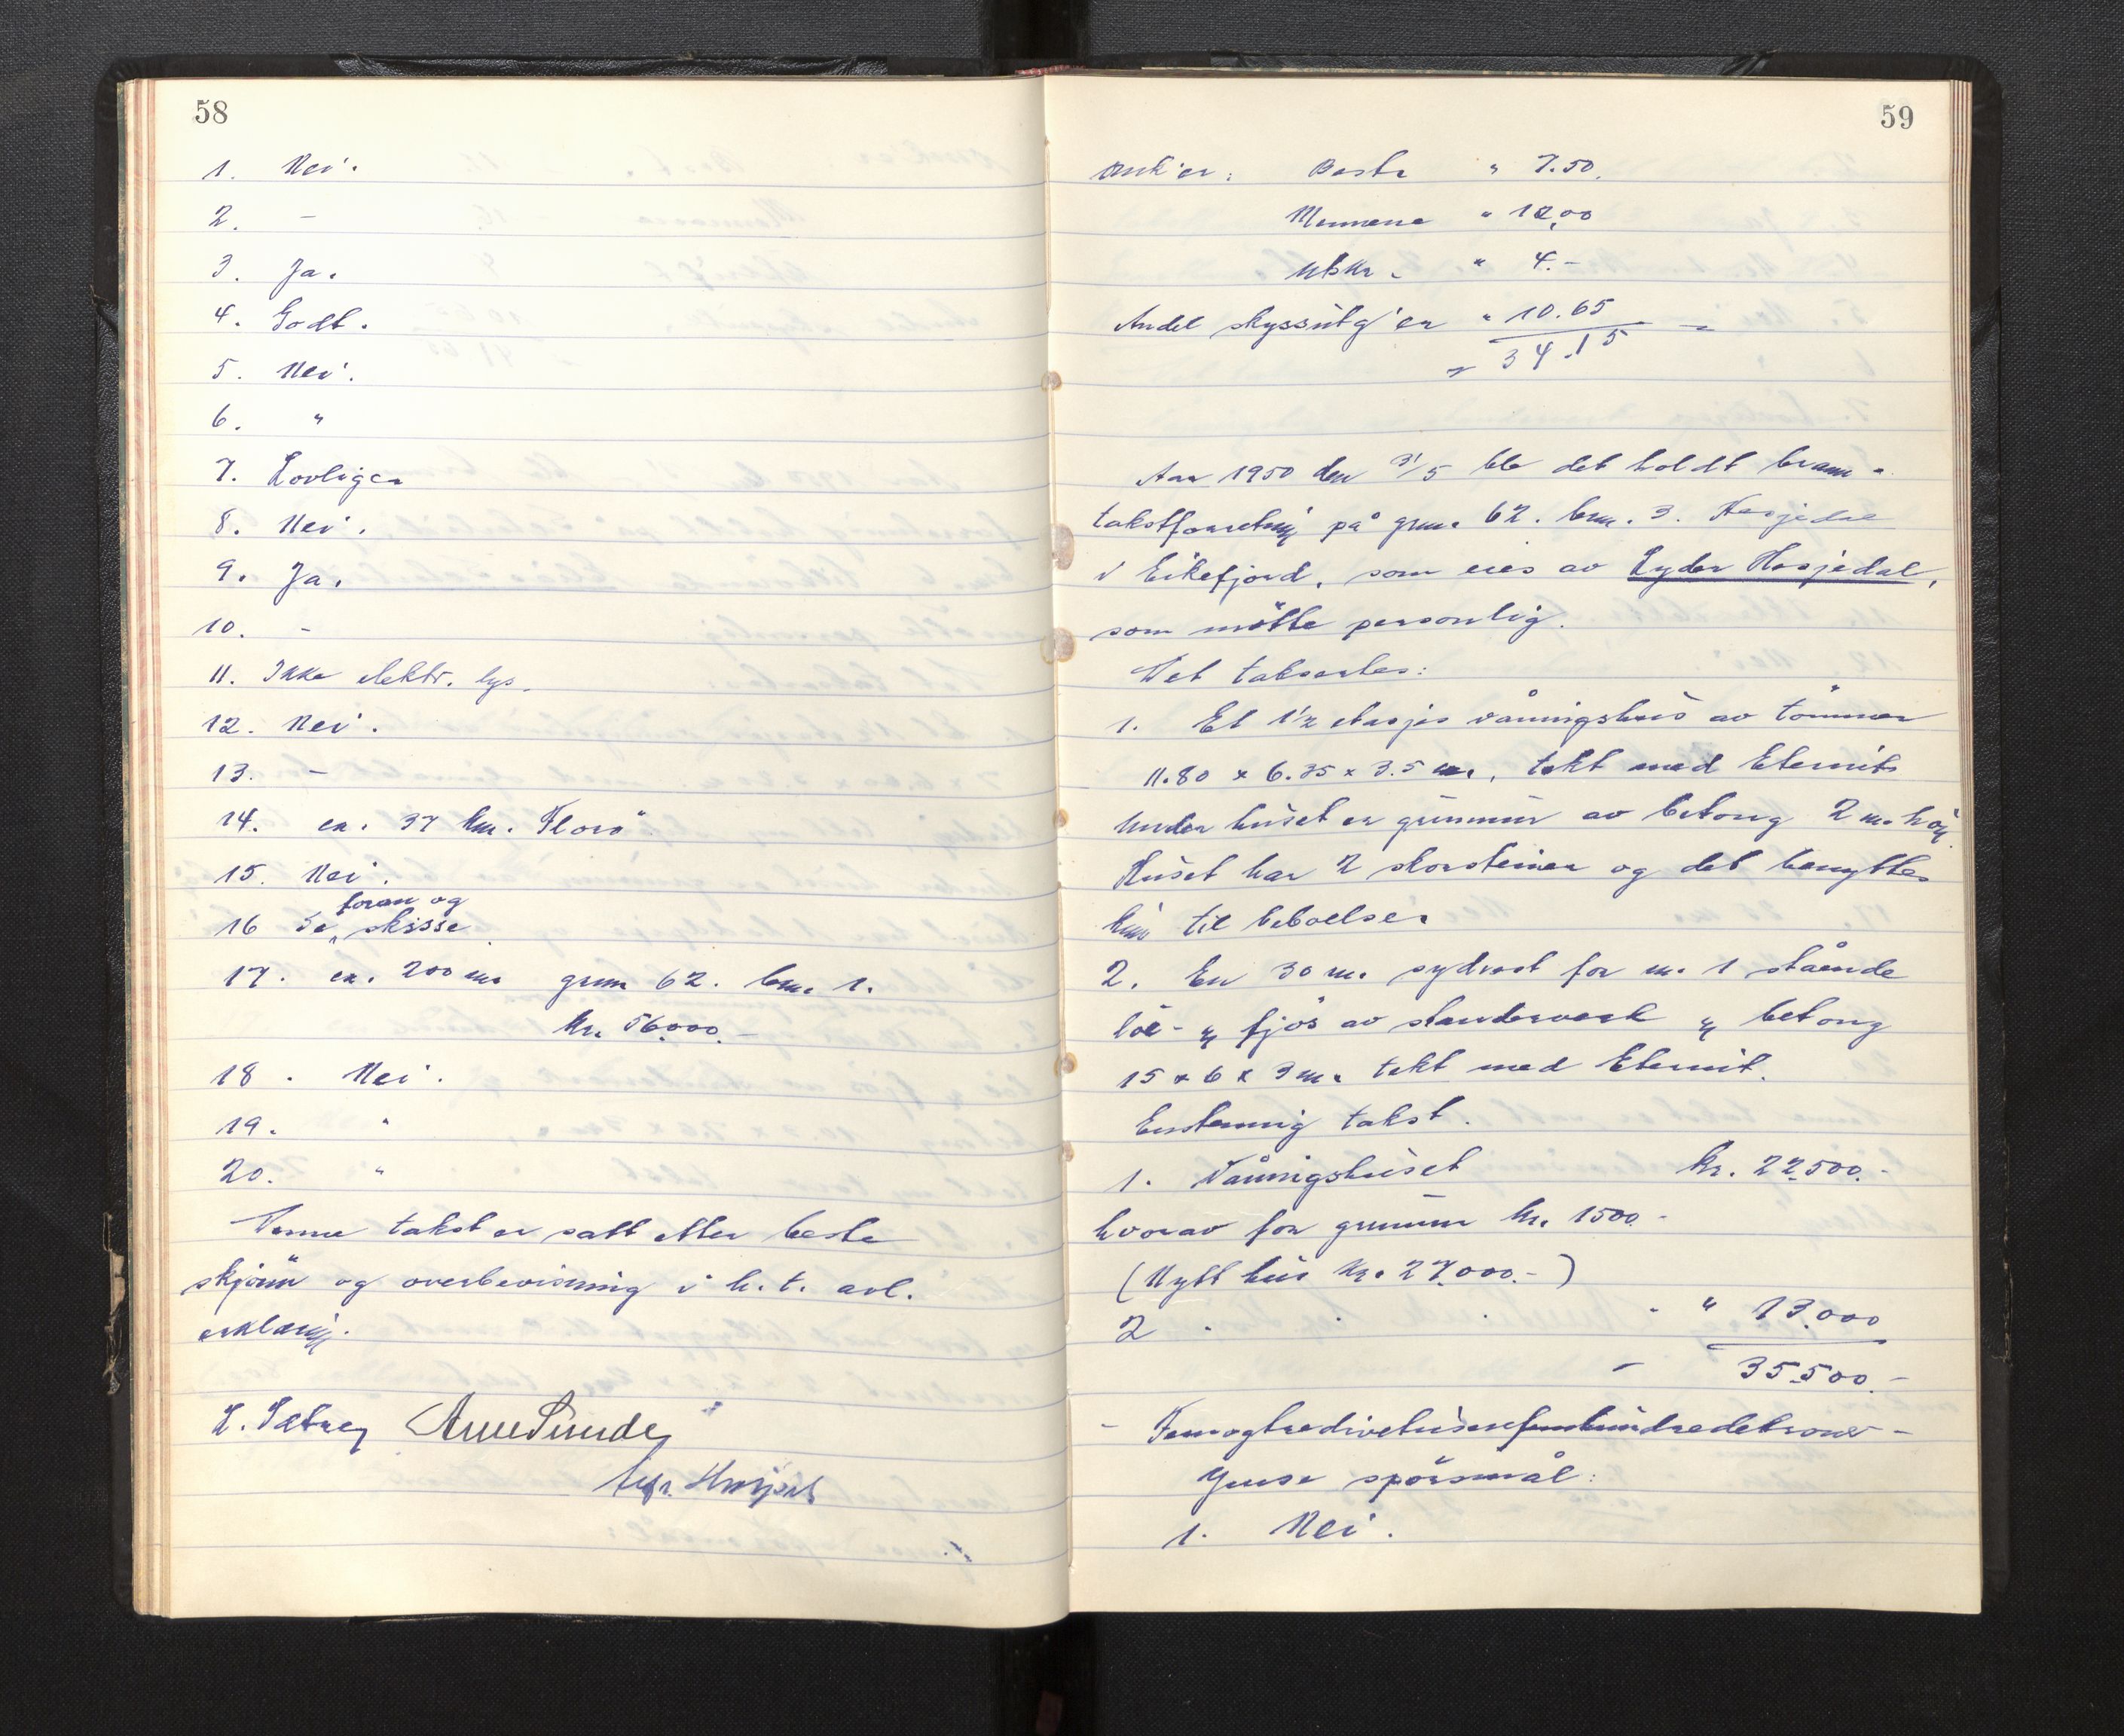 58
1. Nei.
2. -
3. Ja.
4. Godt.
5. Nei.
6. "
7. Lovlige
8. Nei.
9. Ja.
10. -
11. Ikke elektr. lys.
12. Nei.
13. -
14. ca. 37 km. Florö
15. Nei.
foran og
16 Se skisse
17. ca. 200 m. gnm 62. bnm. 1.
kr. 56000.-
18. Nei.
19. "
20. "
Denne takst er satt etter beste
skjönn og overbevisning i h. t. avl.
erklæring.
L. Sætrey Arne Sunde
59
Besta " 7.50.
Mennene " 12,00
Utskr. " 4.-
Andel skyssutg'er " 10.65
" 34.15
Aar 1950 den 31/5 ble det holdt brann-
takstforretning på gnm. 62. bnm. 3. Hasjedal
i Eikefjord, som eies av Lyder Hasjedal,
som mötte personlig.
Det takseertes:
1. Et 1½ etasjes våningshus av tömmer
11.80 x 6.35 x 3.5 m., tekt med Eternit
Under huset er grunnmur av betong 2 m. höy
Huset har 2 skorsteiner og det benyttes
kun til beboelse.
2. En 30 m. sydvest for nr. 1 stående
löe- og fjös av standerverk og betong
15 x 6 x 3 m. tekt med Eternit.
Enstemmig takst.
1. Våningshuset kr. 22500.-
hvorav for grunnmur kr. 1500.-
(Nytt hus kr. 27.000.-)
2 " " 13.000
- 35.500.-
- Femogtredivetusenfemhundredekroner -
Ymse spörsmål:
1. Nei.